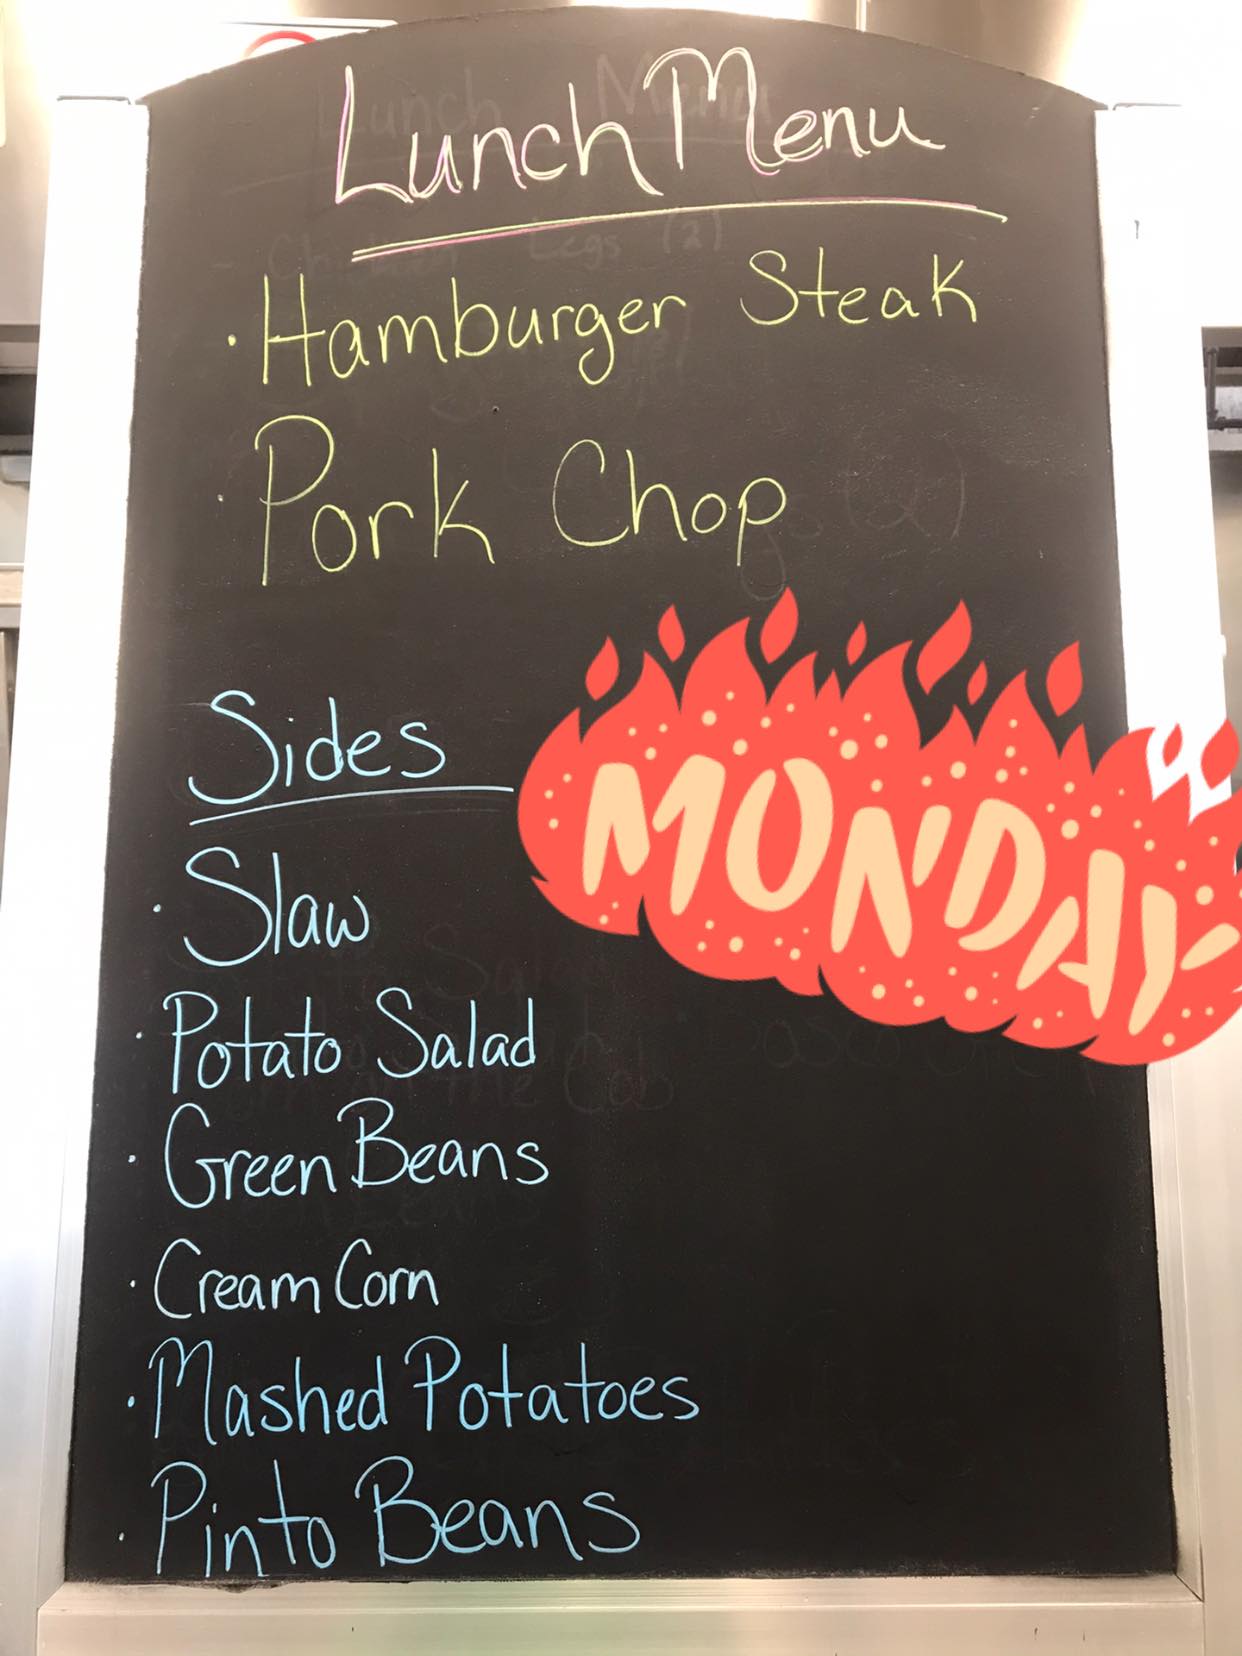 Lunch Menu
· Hamburger Steak
· Pork Chop
Sides
MONDAY
· Slaw
· Potato Salad
· Green Beans
· Cream Corn
· Mashed Potatoes
· Pinto Beans